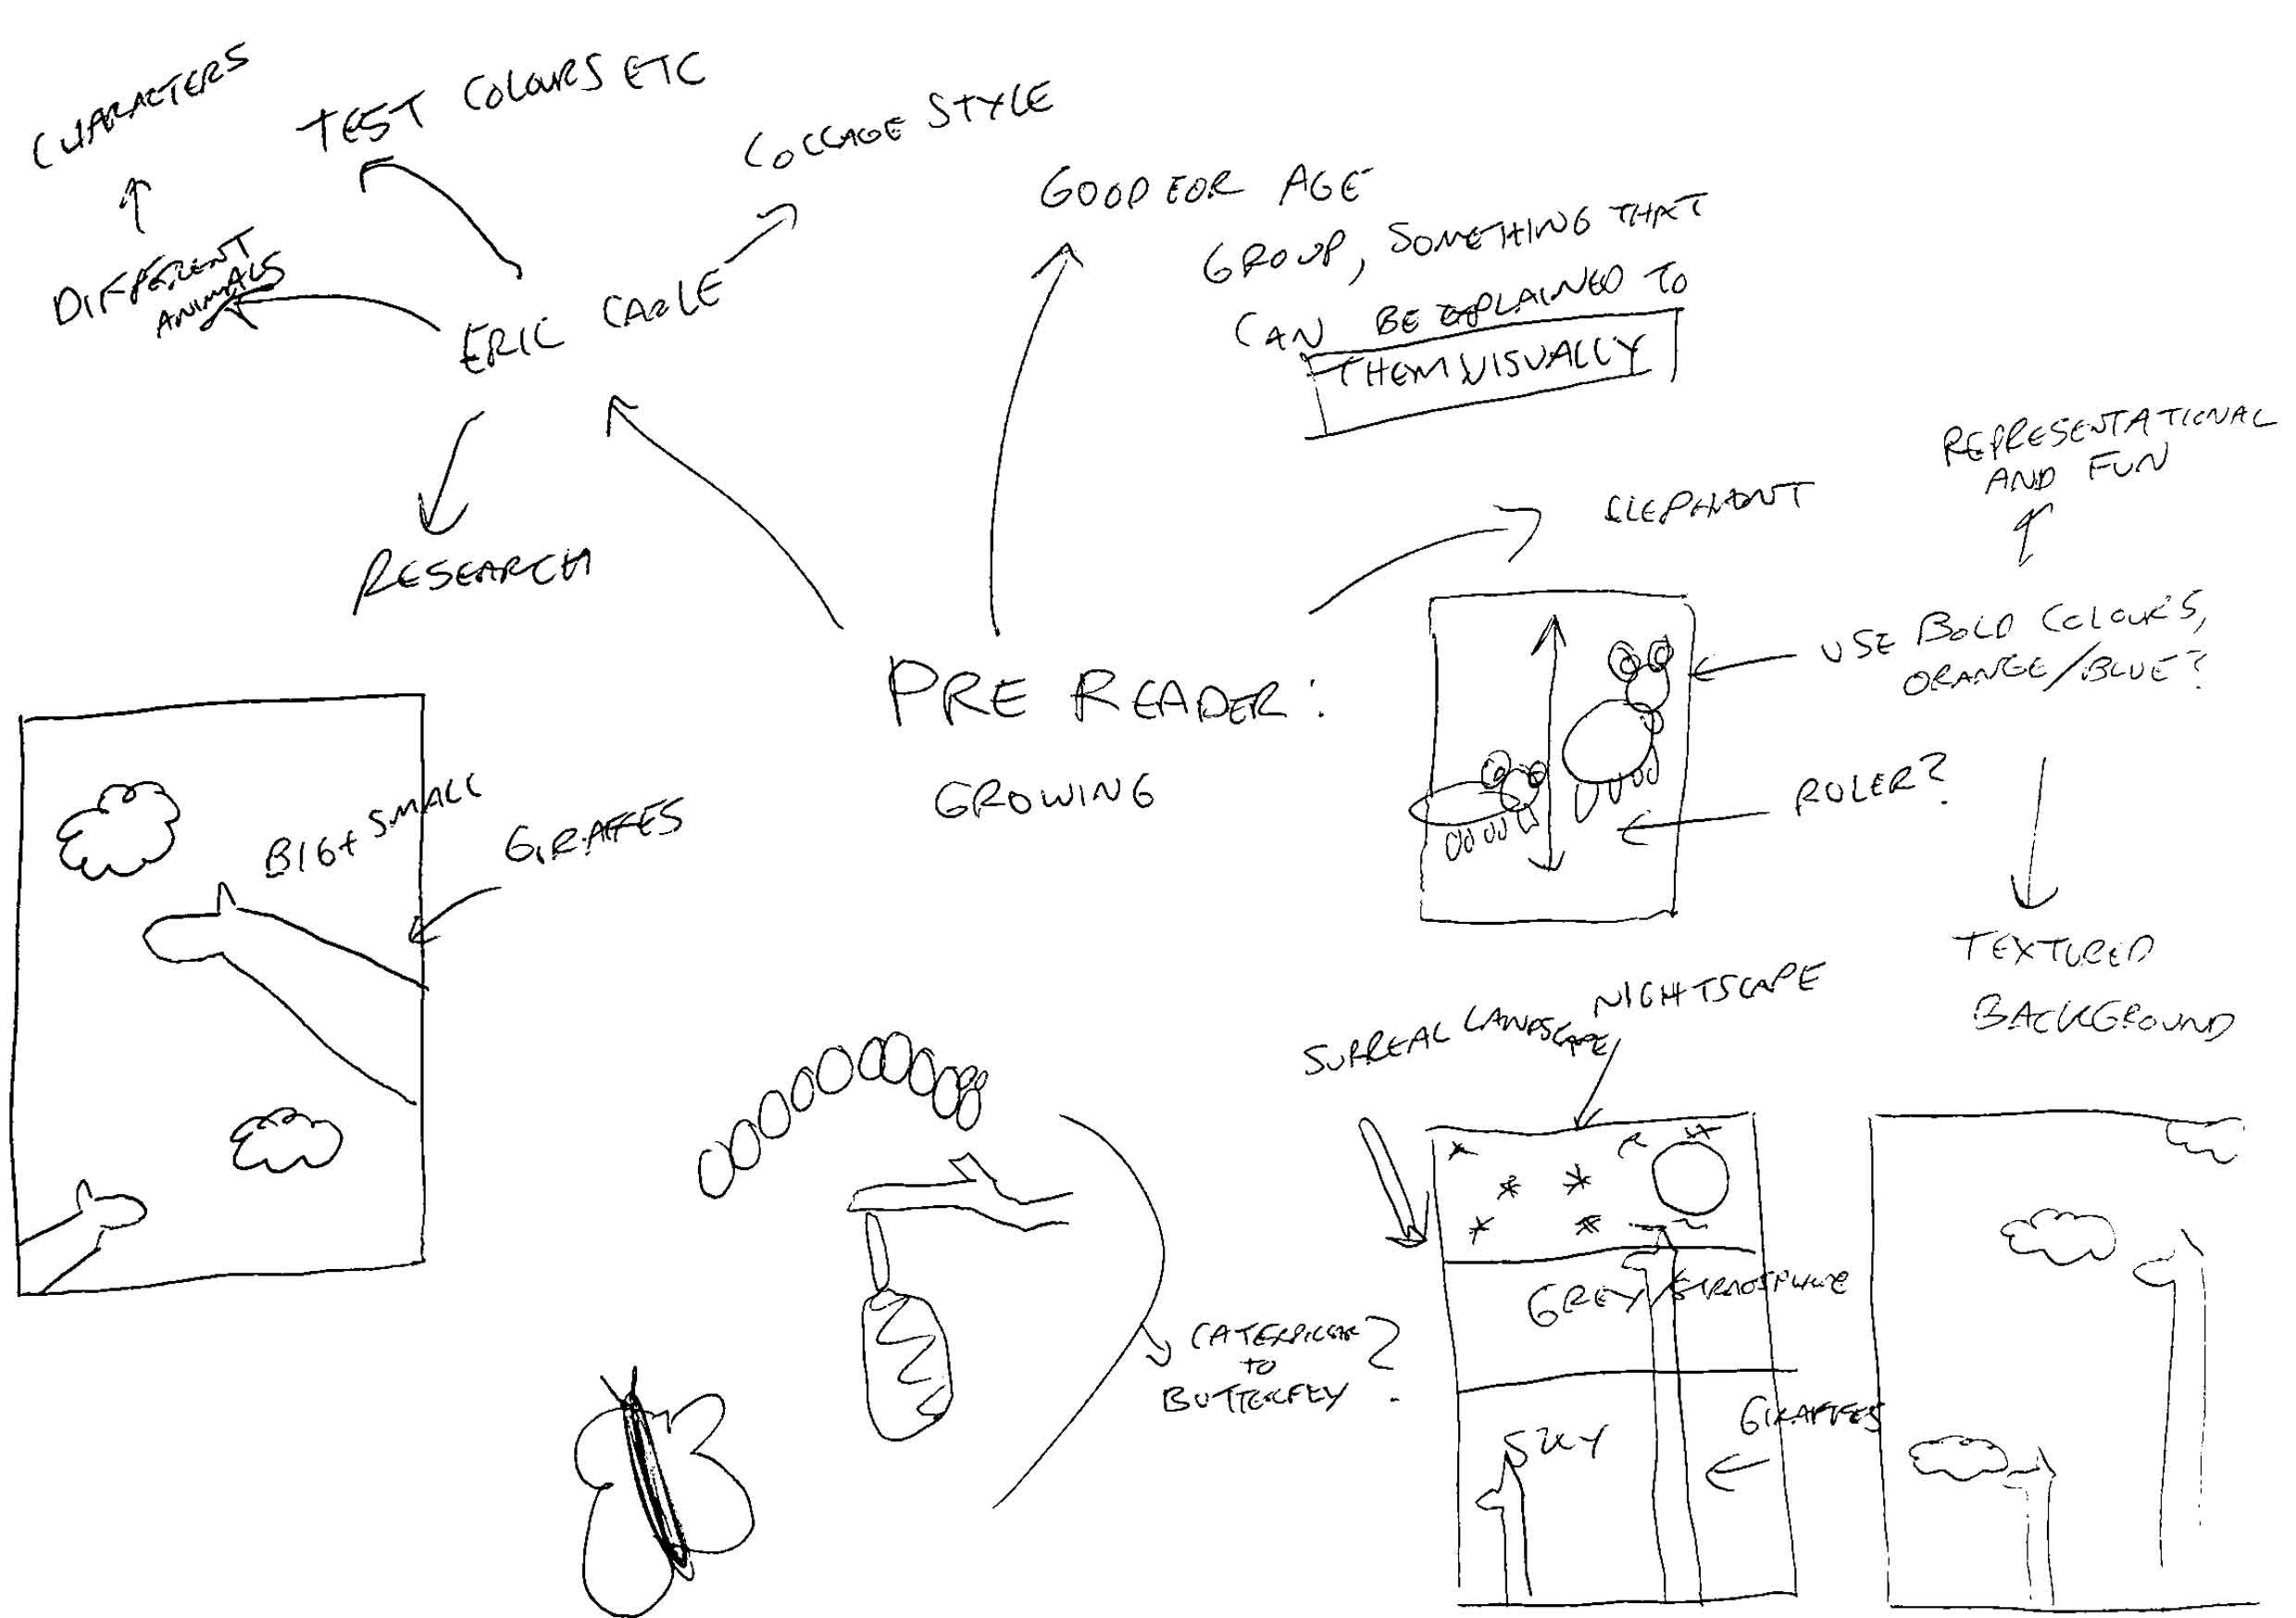 CHARACTERS
TEST COLOURS ETC
COLLAGE STYLE
GOOD FOR AGE
GROUP, SOMETHING THAT
CAN BE EXPLAINED TO
THEM VISUALLY
DIFFERENT
ANIMALS
ERIC CARLE
RESEARCH
REPRESENTATIONAL
AND FUN
ELEPHANT
USE BOLD COLOURS,
ORANGE/BLUE?
PRE READER:
GROWING
RULER?
BIG + SMALL
GIRAFFES
TEXTURED
BACKGROUND
NIGHTSCAPE
SURREAL LANDSCAPE
GREY/
CATERPILLAR
TO
BUTTERFLY?
GIRAFFES
SKY